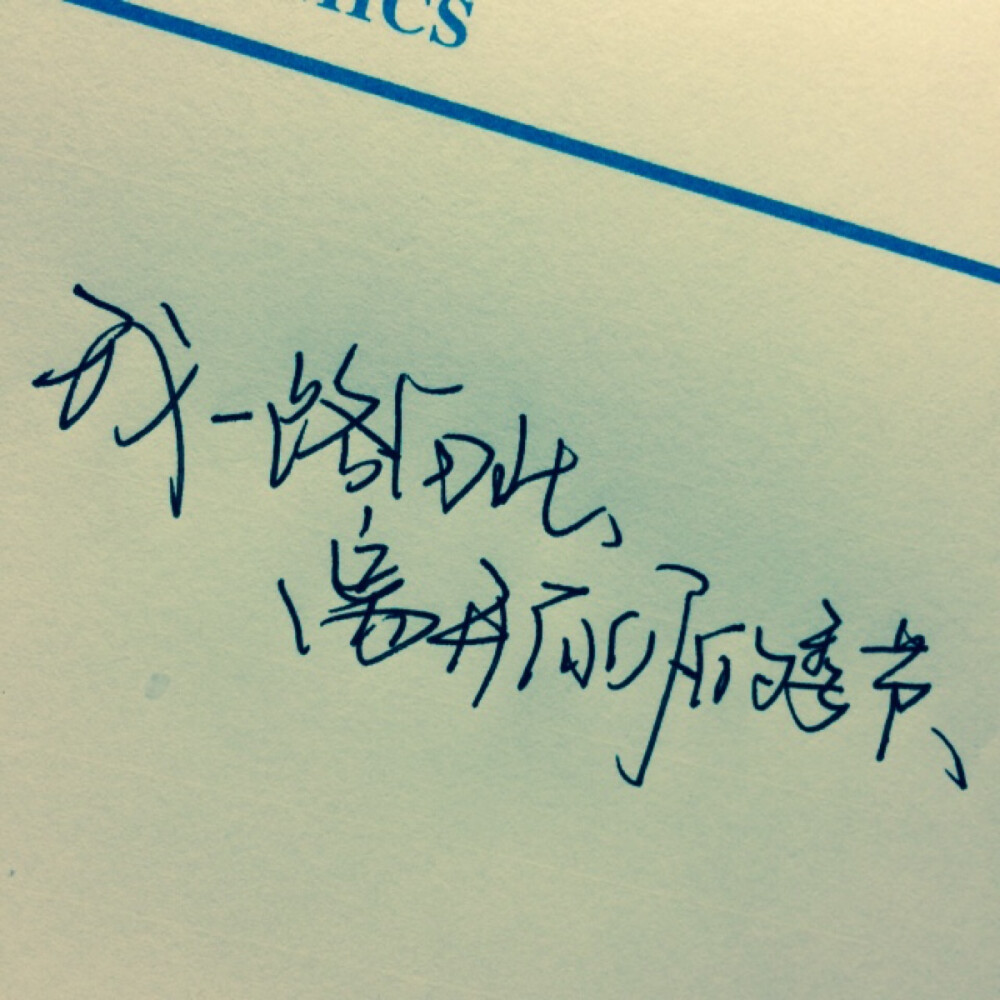 MICS
我一路向北,
离开有你的季节,